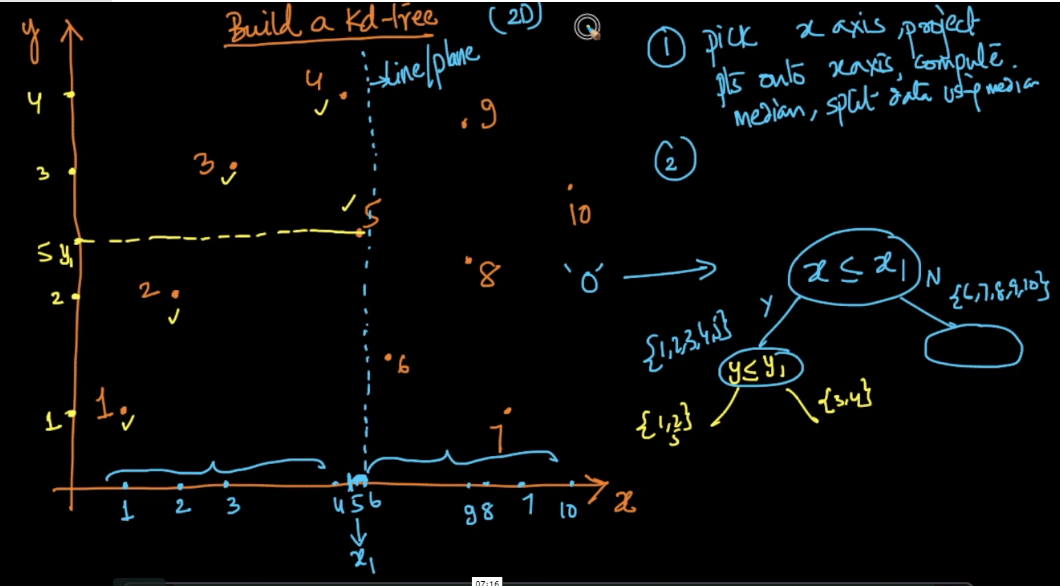 Build a Kd-tree (2D)
① pick x axis, project
pts onto x axis, compute.
median, split data using median
②
y
4
3
5 y₁
2
1
line/plane
4
9
3
5
10
2
8
6
1
7
1 2 3 4 5 6 9 8 7 10
x
x₁
'0'
x ≤ x₁
Y
N
{6,7,8,9,10}
{1,2,3,4,5}
y ≤ y₁
{1,2}
5
{3,4}
07:16